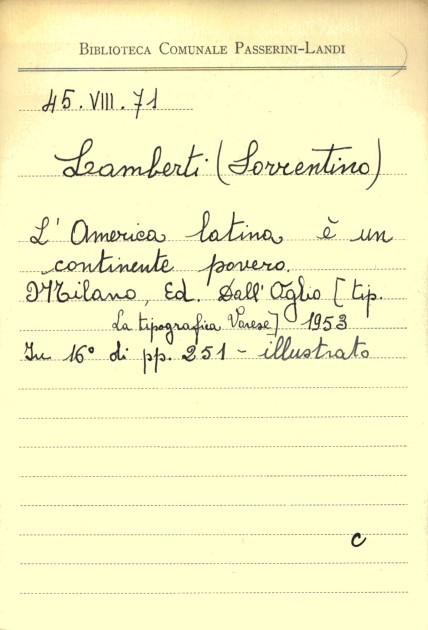 BIBLIOTECA COMUNALE PASSERINI-LANDI
45.VIII.71
Lamberti (Sorrentino)
L' America latina è un
continente povero.
Milano, Ed. Dall' Oglio [tip.
La tipografica Varese] 1953
In 16° di pp. 251 - illustrato
c